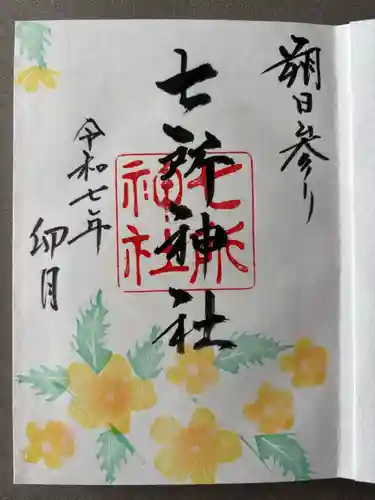 朔日参り
七所神社
七所
神社
令和七年
卯月